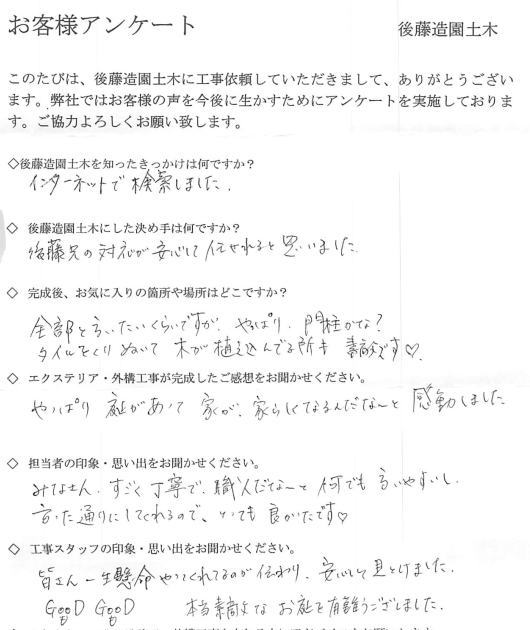 お客様アンケート
後藤造園土木
このたびは、後藤造園土木に工事依頼していただきまして、ありがとうござい
ます。弊社ではお客様の声を今後に生かすためにアンケートを実施しておりま
す。ご協力よろしくお願い致します。
◇後藤造園土木を知ったきっかけは何ですか？
インターネットで検索しました。
◇ 後藤造園土木にした決め手は何ですか？
後藤兄の対応が安心して任せれると思いました。
◇ 完成後、お気に入りの箇所や場所はどこですか？
全部と言いたいくらいですが、やっぱり、門柱かな？
タイルをくりぬいて 木が植え込んでる所も 素敵です♡。
◇ エクステリア・外構工事が完成したご感想をお聞かせください。
やっぱり 庭があって 家が、家らしくなるんだな～と 感動しました
◇ 担当者の印象・思い出をお聞かせください。
みなさん、すごく丁寧で、職人だな～と 何でも言いやすいし、
言った通りにしてくれるので、とっても良かったです♡
◇ 工事スタッフの印象・思い出をお聞かせください。
皆さん 一生懸命 やってくれてるのが伝わり、安心して見とけました。
GOOD GOOD 本当素敵な お庭を有難うございました。